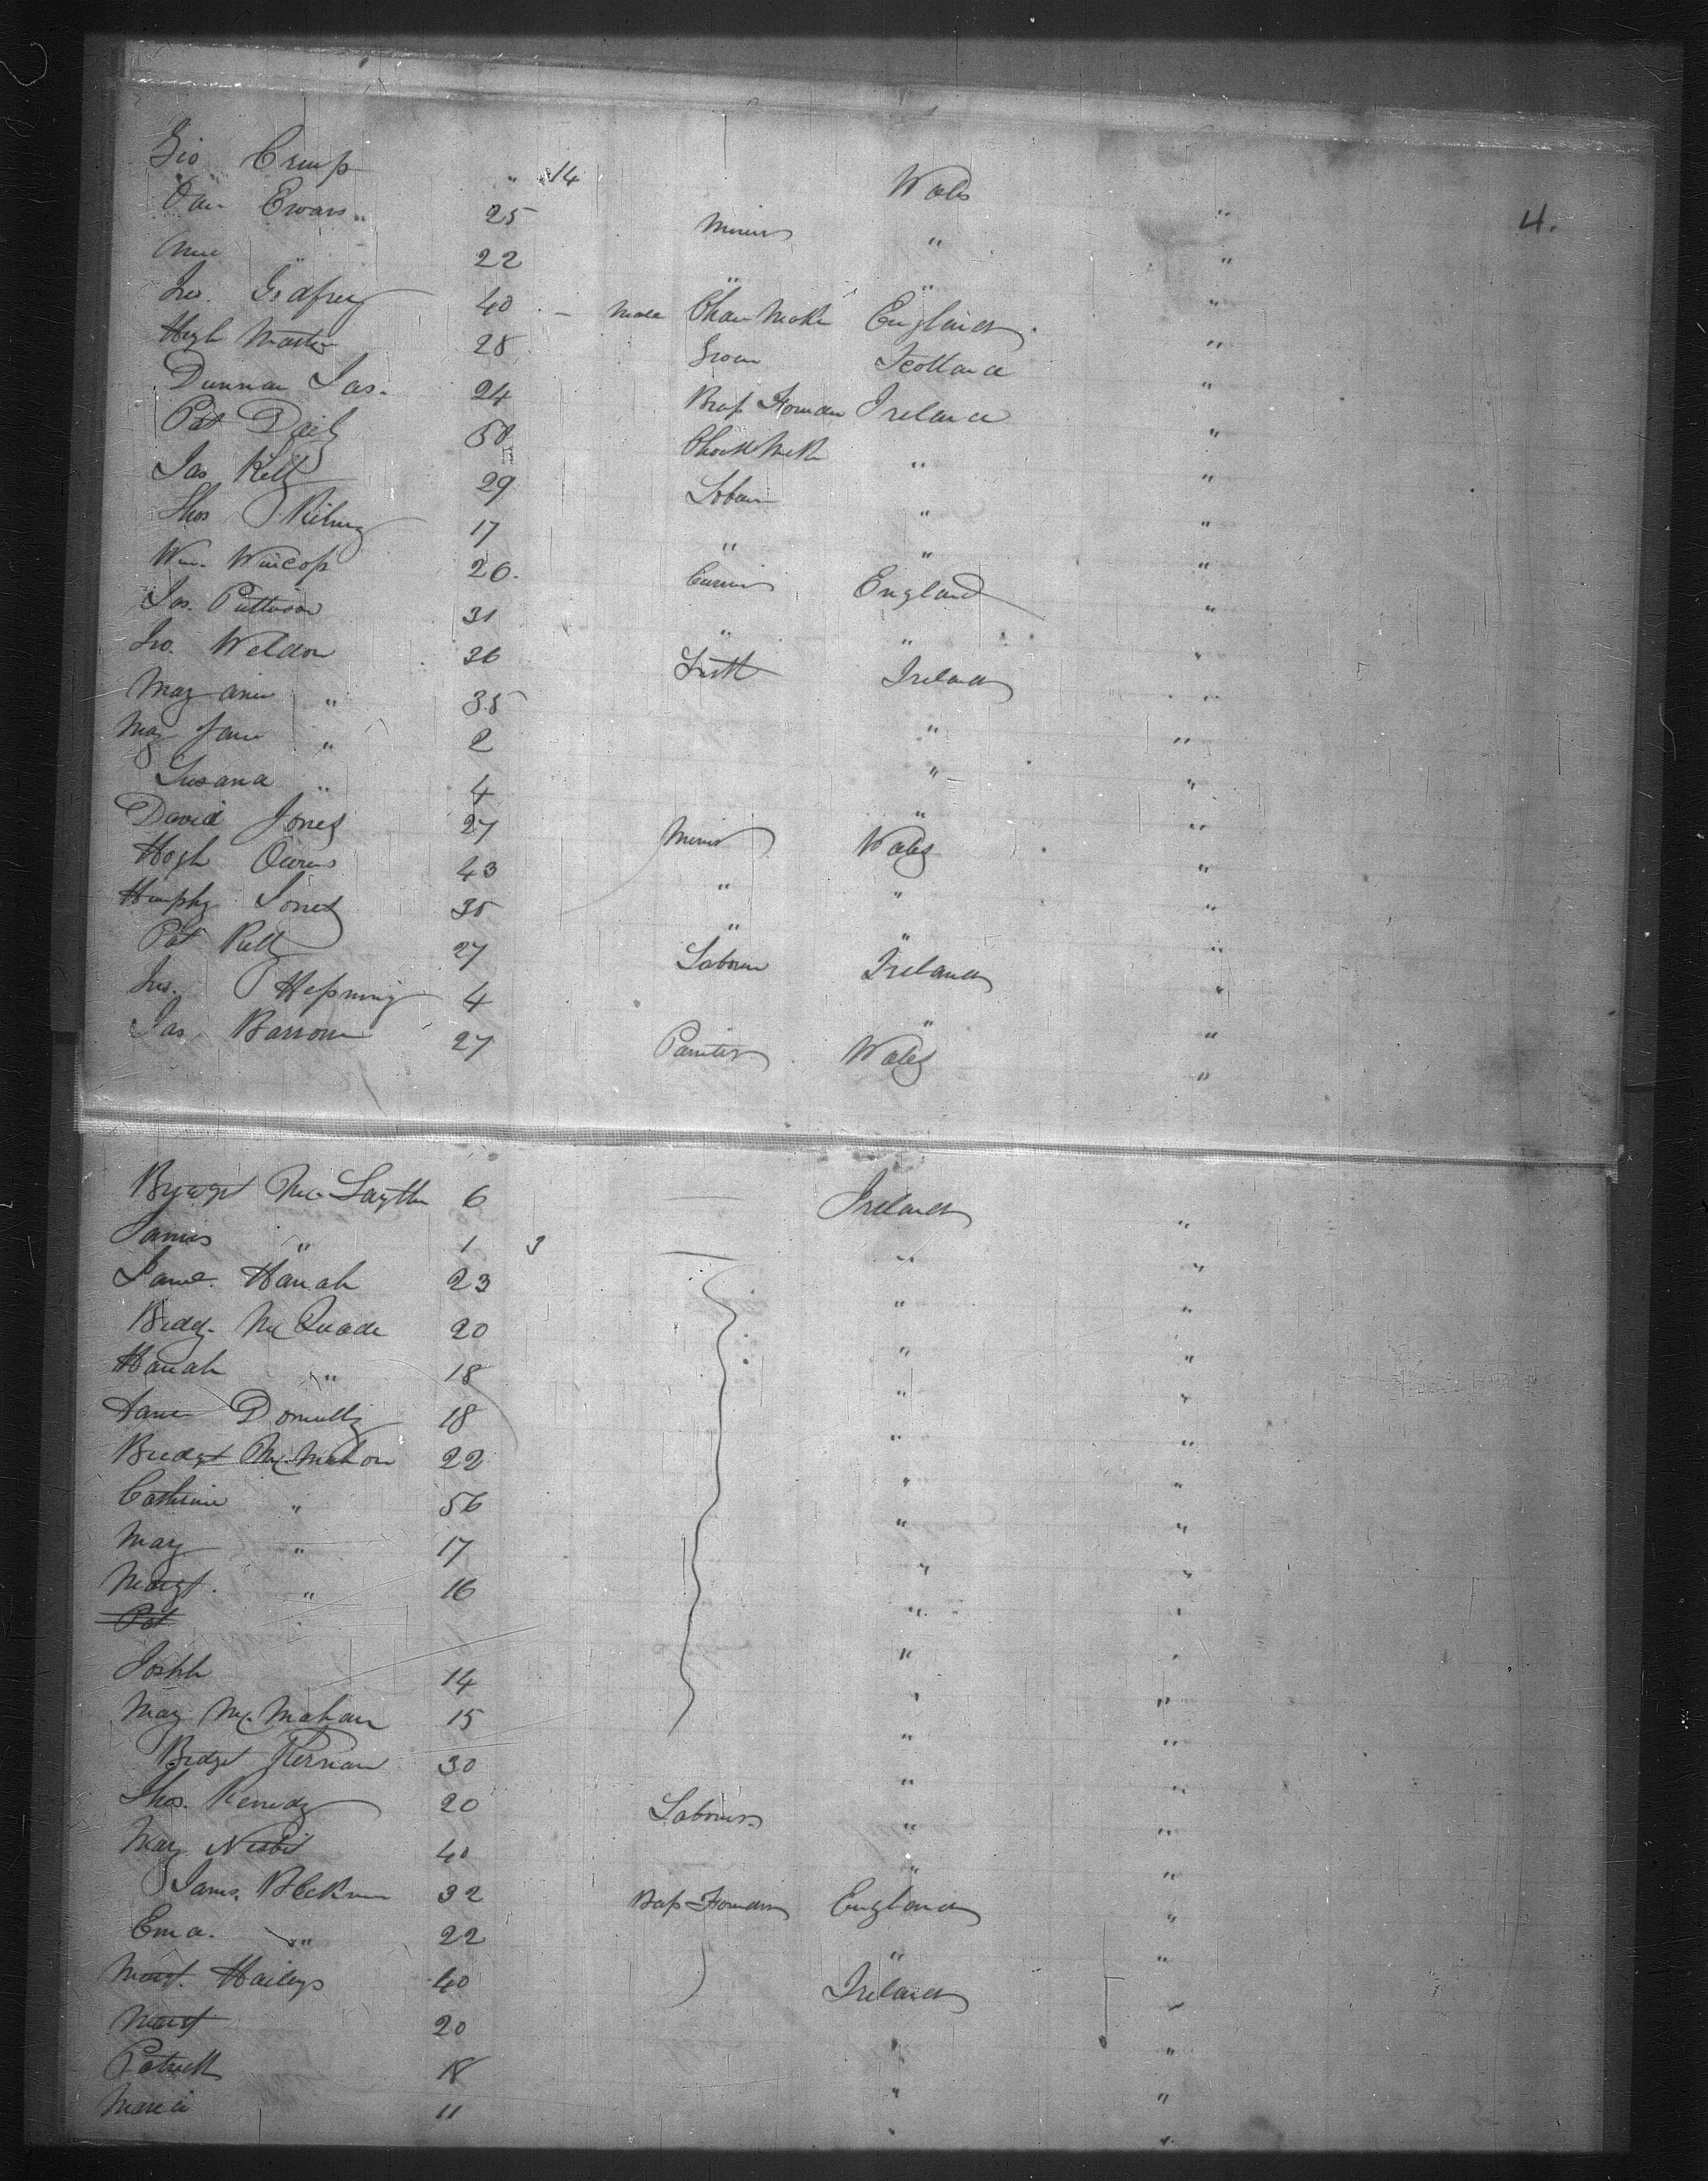 4.
Geo Crump " 14 Wales "
Dan Evans " 25 Miner " "
Ann " 22 " " "
Jno. Godfrey 40 Male Chair Maker England "
Hugh Martin 25 Scotland "
Dunnan Jas. 24 Brass Founder Ireland "
Pat Daily 50 "
Jas Kelly 29 Labour " "
Thos 17 " " "
Wm. Wincop 20. England "
Jas. Patterson 31 " " "
Jno. Weldon 36 Smith Ireland "
May Ann " 35 " "
May Jane " 2 " "
Susana " 4 " "
David Jones 27 Miner Wales "
Hugh Owens 43 " " "
Humphy Jones 35 " " "
Pat Kelly 27 Labourer Ireland "
Jno. 4 " "
Jas. Barrow 27 Painter Wales "
Bridget 6 Ireland "
James " 1 3 " "
Jane Hanah 23 " "
Bridgt. McQuade 20 " "
Hanah " 18 " "
Jane Donnelly 18 " "
Bridget McMahon 22 " "
Catherine " 56 " "
Mary " 17 " "
Margt. " 16 " "
Pat
Joseph 14 " "
Mary McMahan 15 " "
Bridget Kernan 30 " "
Thos. Kennedy 20 Labourer " "
Mary Nesbit 40 " "
James 32 Brass Founder England "
Ema. " 22 " "
Margt. 40 Ireland "
Margt 20 " "
Patrick 18 " "
Maria 11 " "